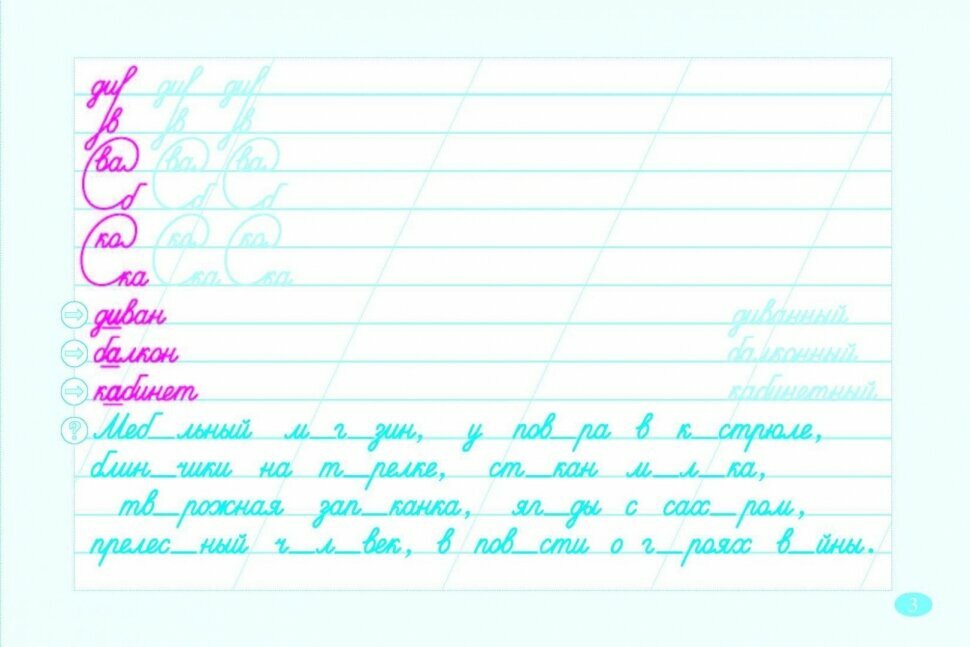 ди ди ди
в в в
ва ва ва
б б б
ко ко ко
ка ка ка
диван диванный
балкон балконный
кабинет кабинетный
? Меб_льный м_г_зин, у пов_ра в к_стрюле,
блин_чики на т_релке, ст_кан м_л_ка,
тв_рожная зап_канка, яг_ды с сах_ром,
прелес_ный ч_л_век, в пов_сти о г_роях в_йны.
3